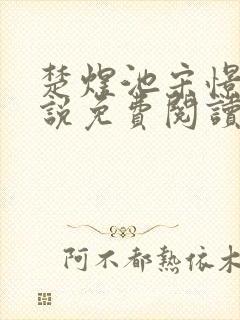 楚煌池宗憬
說免費閱讀
阿不都熱依木